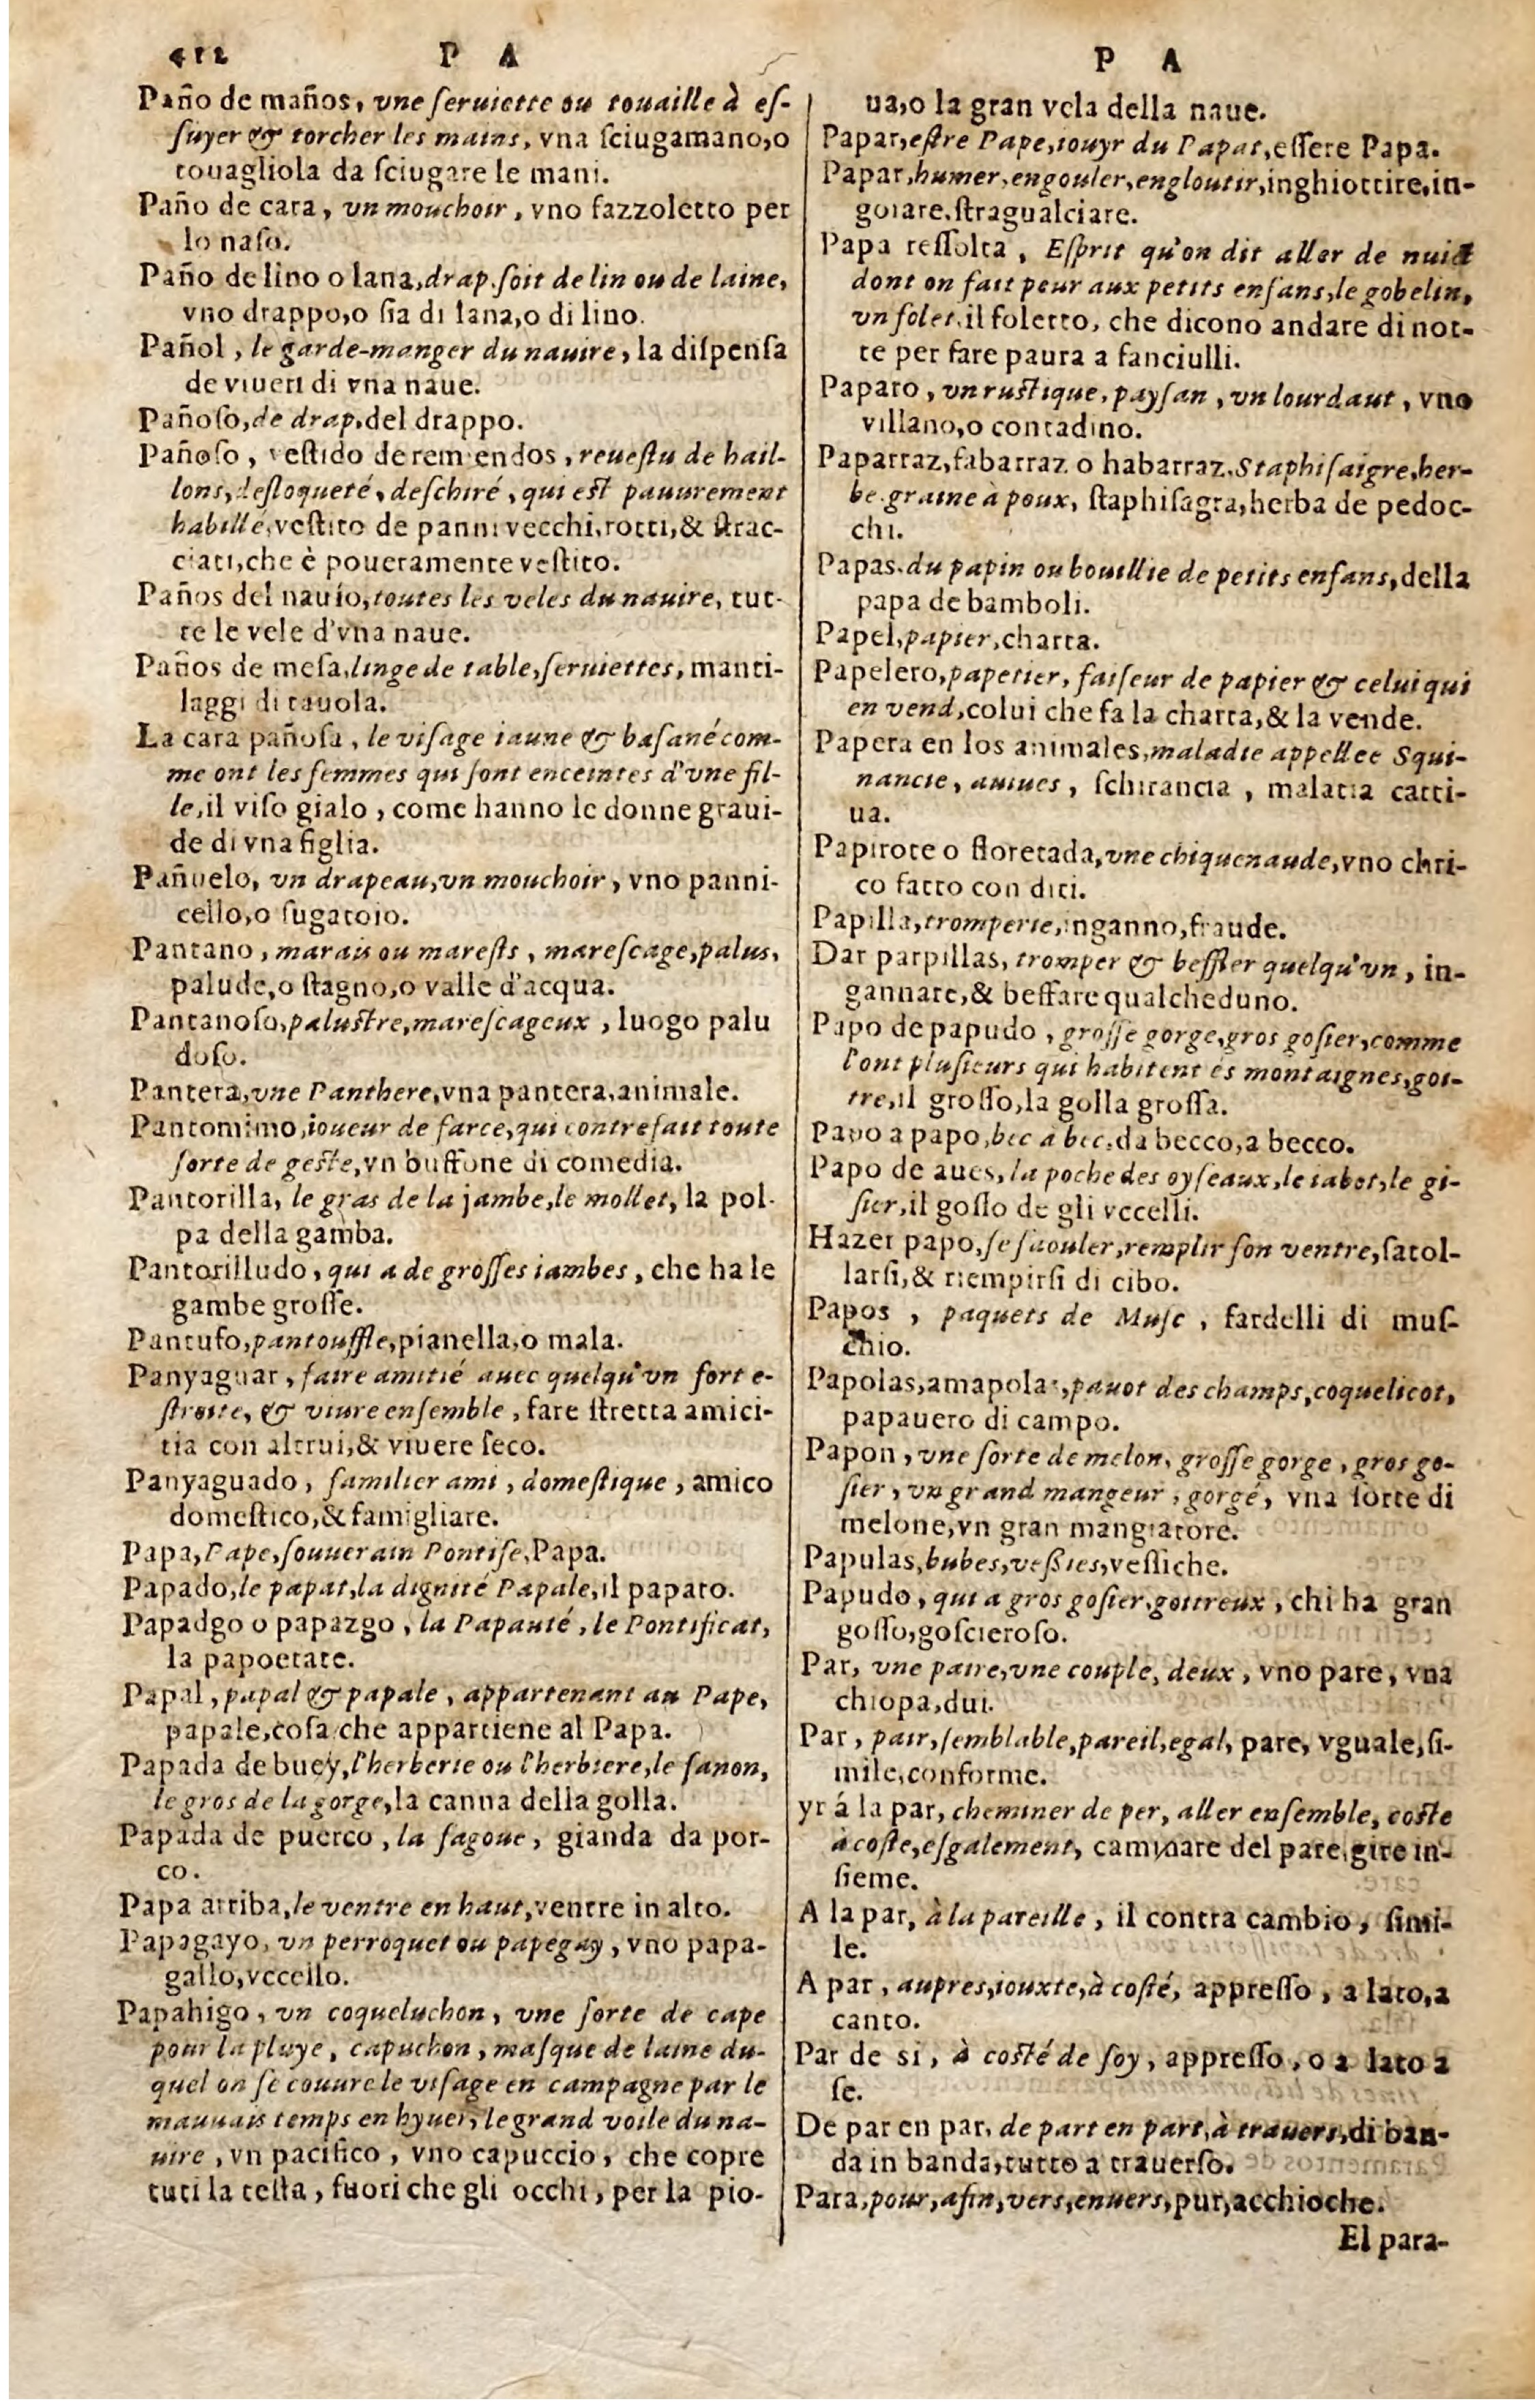 412 P A
P A
Paño de maños, vne ſeruiette ou touaille à eſ-
ſuyer & torcher les mains, vna ſciugamano,o
touagliola da ſciugare le mani.
Paño de cara, vn mouchoir, vno fazzoletto per
lo naſo.
Paño de lino o lana,drap,ſoit de lin ou de laine,
vno drappo,o ſia di lana,o di lino.
Pañol, le garde-manger du nauire, la diſpenſa
de viueri di vna naue.
Pañoſo,de drap,del drappo.
Pañoſo, veſtido de remiendos, reueſtu de hail-
lons,deſloqueté, deſchiré, qui eſt pauurement
habillé,veſtito de panni vecchi,rotti,& ſtrac-
ciati,che è poueramente veſtito.
Paños del nauío,toutes les veles du nauire, tut-
te le vele d'vna naue.
Paños de meſa,linge de table,ſeruiettes, manti-
laggi di tauola.
La cara pañoſa, le viſage iaune & baſané com-
me ont les femmes qui ſont enceintes d'vne fil-
le,il viſo gialo, come hanno le donne graui-
de di vna figlia.
Pañuelo, vn drapeau,vn mouchoir, vno panni-
cello,o ſugatoio.
Pantano, marais ou mareſts, mareſcage,palus,
palude,o ſtagno,o valle d'acqua.
Pantanoſo,paluſtre,mareſcageux, luogo palu
doſo.
Pantera,vne Panthere,vna pantera,animale.
Pantomimo,ioueur de farce,qui contrefait toute
ſorte de geſte,vn buffone di comedia.
Pantorilla, le gras de la jambe,le mollet, la pol-
pa della gamba.
Pantorilludo, qui a de groſſes iambes, che ha le
gambe groſſe.
Pantufo,pantouffle,pianella,o mala.
Panyaguar, faire amitié auec quelqu'vn fort e-
ſtroite, & viure enſemble, fare ſtretta amici-
tia con altrui,& viuere ſeco.
Panyaguado, familier ami, domeſtique, amico
domeſtico,& famigliare.
Papa,Pape,ſouuerain Pontife,Papa.
Papado,le papat,la dignité Papale,il papato.
Papadgo o papazgo, la Papauté, le Pontificat,
la papoetate.
Papal, papal & papale, appartenant au Pape,
papale,coſa che appartiene al Papa.
Papada de buey,l'herberie ou l'herbiere,le fanon,
le gros de la gorge,la canna della golla.
Papada de puerco, la fagoue, gianda da por-
co.
Papa arriba,le ventre en haut,ventre in alto.
Papagayo, vn perroquet ou papegay, vno papa-
gallo,vccello.
Papahigo, vn coqueluchon, vne ſorte de cape
pour la pluye, capuchon, maſque de laine du-
quel on ſe couure le viſage en campagne par le
mauuais temps en hyuer, le grand voile du na-
uire, vn pacifico, vno capuccio, che copre
tuti la teſta, fuori che gli occhi, per la pio-
ua,o la gran vela della naue.
Papar,eſtre Pape,iouyr du Papat,eſſere Papa.
Papar,humer,engouler,engloutir,inghiottire,in-
goiare,ſtragualciare.
Papa reſſolta, Eſprit qu'on dit aller de nuict
dont on fait peur aux petits enfans,le gobelin,
vn folet,il foletto, che dicono andare di not-
te per fare paura a fanciulli.
Paparo, vn ruſtique, payſan, vn lourdaut, vno
villano,o contadino.
Paparraz,fabarraz o habarraz,Staphiſaigre,her-
be,graine à poux, ſtaphiſagra,herba de pedoc-
chi.
Papas,du papin ou bouillie de petits enfans,della
papa de bamboli.
Papel,papier,charta.
Papelero,papetier, faiſeur de papier & celui qui
en vend,colui che fa la charta,& la vende.
Papera en los animales,maladie appellee Squi-
nancie, auiues, ſchirancia, malatia catti-
ua.
Papirote o floretada,vne chiquenaude,vno chri-
co fatto con diti.
Papilla,tromperie,inganno,fraude.
Dar parpillas, tromper & beffler quelqu'vn, in-
gannare,& beffare qualcheduno.
Papo de papudo, groſſe gorge,gros goſier,comme
l'ont pluſieurs qui habitent és montaignes,goi-
tre,il groſſo,la golla groſſa.
Papo a papo,bec a bec,da becco,a becco.
Papo de aues,la poche des oyſeaux,le iabot,le gi-
ſier,il goſſo de gli vccelli.
Hazer papo,ſe ſaouler,remplir ſon ventre,ſatol-
larſi,& riempirſi di cibo.
Papos, paquets de Muſc, fardelli di muſ-
chio.
Papolas,amapolas,pauot des champs,coquelicot,
papauero di campo.
Papon, vne ſorte de melon, groſſe gorge, gros go-
ſier, vn grand mangeur, gorgé, vna ſorte di
melone,vn gran mangiatore.
Papulas,bubes,veßies,veſſiche.
Papudo, qui a gros goſier,goitreux, chi ha gran
goſſo,goſcieroſo.
Par, vne paire,vne couple, deux, vno pare, vna
chiopa,dui.
Par, pair,ſemblable,pareil,egal, pare, vguale,ſi-
mile,conforme.
yr á la par, cheminer de per, aller enſemble, coſte
à coſte,eſgalement, caminare del pare,gire in-
ſieme.
A la par, à la pareille, il contra cambio, ſimi-
le.
A par, aupres,iouxte,à coſté, appreſſo, a lato,a
canto.
Par de si, à coſté de ſoy, appreſſo, o a lato a
ſe.
De par en par, de part en part,à trauers,di ban-
da in banda,tutto a trauerſo.
Para,pour,afin,vers,enuers,pur,acchioche.
El para-